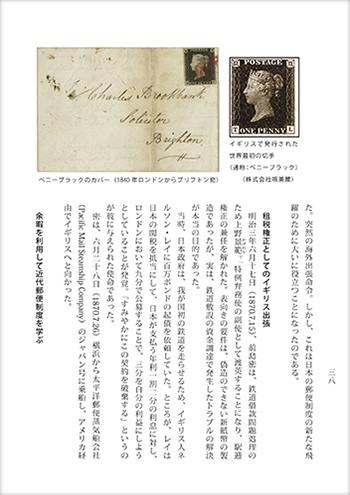 Charles Brookbank
Solicitor
Brighton
ペニーブラックのカバー（1840年ロンドンからブリフトン宛）
POSTAGE
T ONE PENNY L
イギリスで発行された
世界最初の切手
（通称：ペニーブラック）
（株式会社鳴美蔵）
三八
た。突然の海外出張命令。しかし、これは日本の郵便制度の新たな飛
躍のために大いに役立つことになったのである。
租税権正としてのイギリス出張
明治三年六月十七日（1870.7.15）、前島密は、鉄道借款問題処理の
ため上野景範 特例弁務使の副使として渡英することになり、駅逓
権正の兼任を解かれた。表向きの要件は、偽造のできない新紙幣の製
造であったが、実は、鉄道敷設の資金調達で発生したトラブルの解決
が本当の目的であった。
当時、日本政府は、我が国初の鉄道を走らせるため、イギリス人ネ
ルソン・レイに百万ポンドの起債を依頼していた。ところが、レイは
日本の関税を抵当にして、日本が支払う年利一割二分の利息に対し、
ロンドンにおいて九分で公募することで、三分を自分の利益にしよう
としていることが発覚。「すみやかにこの契約を破棄する」というの
が彼に与えられた使命であった。
密は、六月二十八日（1870.7.26）横浜から太平洋郵便蒸気船会社
（Pacific Mail Steamship Company）のジャパン号に乗船し、アメリカ経
由でイギリスへと向かった。
余暇を利用して近代郵便制度を学ぶ